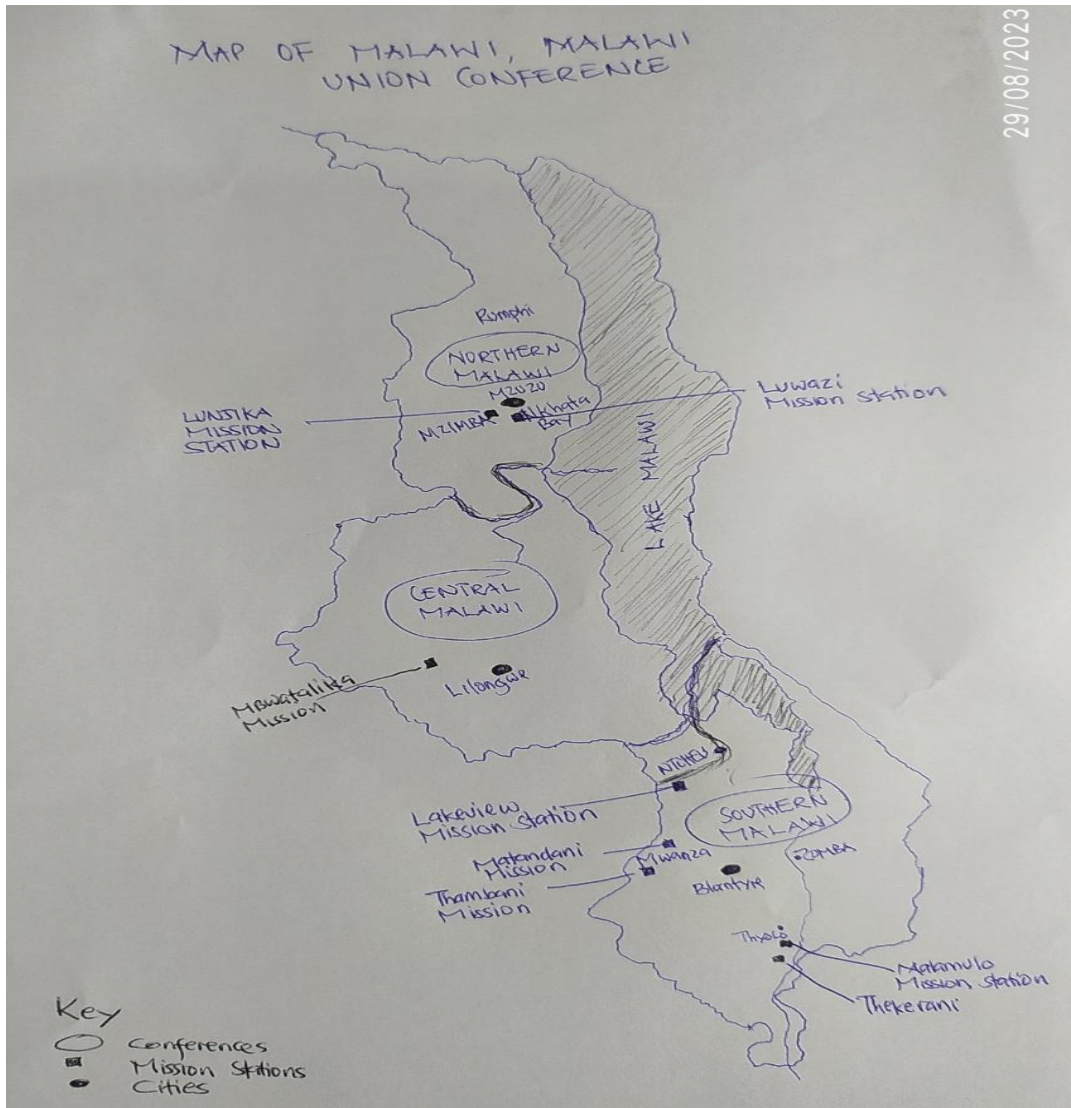 MAP OF MALAWI, MALAWI
UNION CONFERENCE
29/08/2023
Rumphi
NORTHERN
MALAWI
MZUZU
LUNJIKA
MISSION
STATION
MZIMBA
Nkhata
Bay
LUWAZI
Mission Station
LAKE MALAWI
CENTRAL
MALAWI
Lilongwe
Mission
NTCHEU
Lakeview
Mission Station
SOUTHERN
MALAWI
Matandani
Mission
Mwanza
ZOMBA
Thambani
Mission
Blantyre
Thyolo
Malamulo
Mission Station
Thekerani
Key
Conferences
Mission Stations
Cities